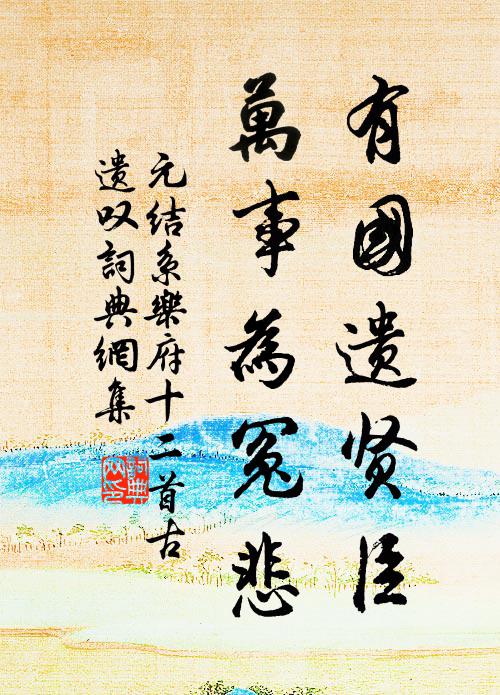 有國遺贤臣
萬事為冤悲
元结系樂府十二首古
遗叹詞典網集